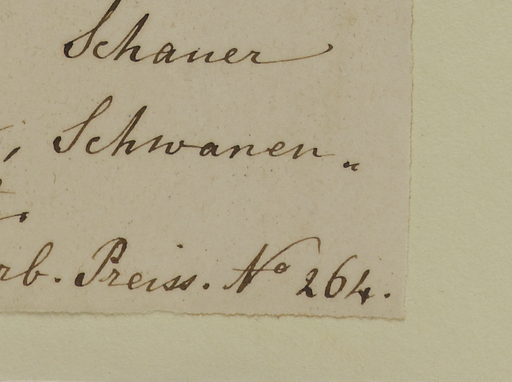 Schauer
, Schwanen„
rb. Preiss. No 264.